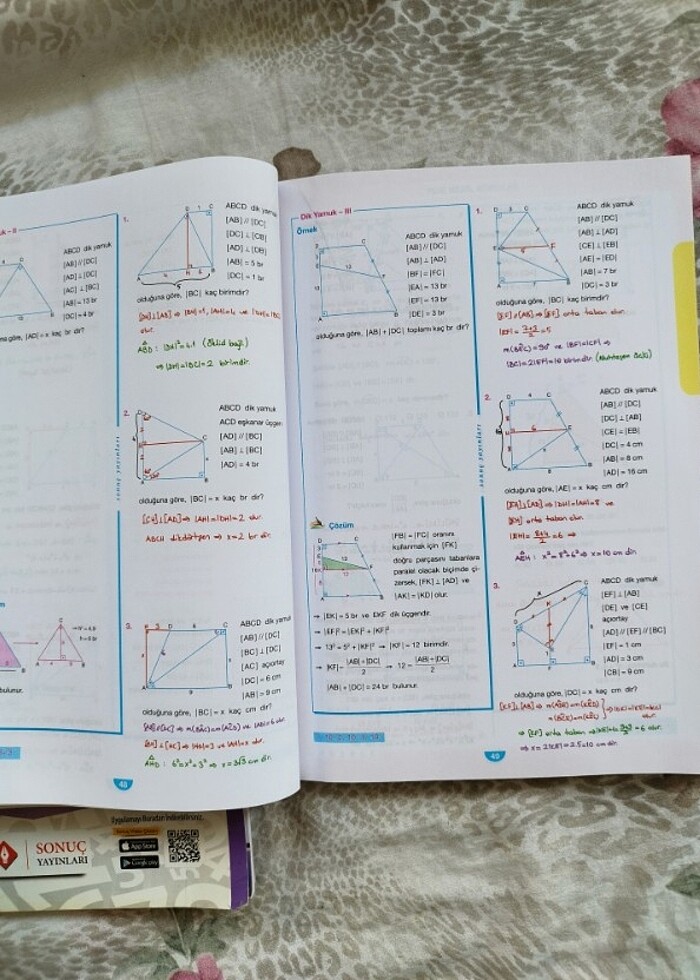 ABCD dik yamuk
[AB] // [DC]
[AD] ⊥ [DC]
[AC] ⊥ [BC]
|AB| = 13 br
|DC| = 4 br
göre, |AD| = x kaç br dir?
bulunur.
sonuç yayınları
1.
ABCD dik yamuk
[AB] // [DC]
[DC] ⊥ [CB]
[AD] ⊥ [DB]
|AB| = 5 br
|DC| = 1 br
olduğuna göre, |BC| kaç birimdir?
[DH] ⊥ [AB] ⇒ |BH| = 1, |AH| = 4 ve |DH| = |BC|
olur.
ABD : |DH|² = 4.1 (Öklid bağ.)
⇒ |DH| = |BC| = 2 birimdir.
2.
ABCD dik yamuk
ACD eşkenar üçgen
[AD] // [BC]
[AB] ⊥ [BC]
|AD| = 4 br
olduğuna göre, |BC| = x kaç br dir?
[CH] ⊥ [AD] ⇒ |AH| = |DH| = 2 olur.
ABCH dikdörtgen ⇒ x = 2 br dir.
3.
ABCD dik yamuk
[AB] // [DC]
[BC] ⊥ [DC]
[AC] açıortay
|DC| = 6 cm
|AB| = 9 cm
olduğuna göre, |BC| = x kaç cm dir?
[AH] ⊥ [HC] ⇒ |HD| = 3 ve |AH| = x olur.
AHD : 6² = x² + 3² ⇒ x = 3√3 cm dir.
48
Dik Yamuk – III
Örnek
ABCD dik yamuk
[AB] // [DC]
[AB] ⊥ [AD]
|BF| = |FC|
|EA| = 13 br
|EF| = 13 br
|DE| = 3 br
olduğuna göre, |AB| + |DC| toplamı kaç br dir?
Çözüm
|FB| = |FC| oranını
kullanmak için [FK]
doğru parçasını tabanlara
paralel olacak biçimde çi-
zersek, [FK] ⊥ [AD] ve
|AK| = |KD| olur.
→ |EK| = 5 br ve EKF dik üçgendir.
→ |EF|² = |EK|² + |KF|²
→ 13² = 5² + |KF|² → |KF| = 12 birimdir.
→ |KF| = |AB|+|DC| / 2 → 12 = |AB|+|DC| / 2
|AB| + |DC| = 24 br bulunur.
sonuç yayınları
1.
ABCD dik yamuk
[AB] // [DC]
[AB] ⊥ [AD]
[CE] ⊥ [EB]
|AE| = |ED|
|AB| = 7 br
|DC| = 3 br
olduğuna göre, |BC| kaç birimdir?
[EF] // [AB] ⇒ [EF] orta taban olur.
|EF| = 7+3 / 2 = 5
m(BEC) = 90° ve |BF| = |CF| ⇒
|BC| = 2|EF| = 10 birimdir. (Muhteşem Üçlü)
2.
ABCD dik yamuk
[AB] // [DC]
[DC] ⊥ [AD]
|CE| = |EB|
|DC| = 4 cm
|AB| = 8 cm
|AD| = 16 cm
olduğuna göre, |AE| = x kaç cm dir?
[EH] ⊥ [AD] ⇒ |DH| = |AH| = 8 ve
[EH] orta taban olur.
|EH| = 8+4 / 2 = 6 ⇒
AEH : x² = 8² + 6² ⇒ x = 10 cm dir.
3.
ABCD dik yamuk
[EF] ⊥ [AB]
[DE] ve [CE]
açıortay
[AD] // [EF] // [BC]
|EF| = 1 cm
|AD| = 3 cm
|CB| = 9 cm
olduğuna göre, |DC| = x kaç cm dir?
⇒ [KF] orta taban ⇒ = 6 olur.
⇒ x = 2|KE| = 2.5 = 10 cm dir.
49
SONUÇ
YAYINLARI
Uygulamayı Buradan İndirebilirsiniz.
App Store
Google play